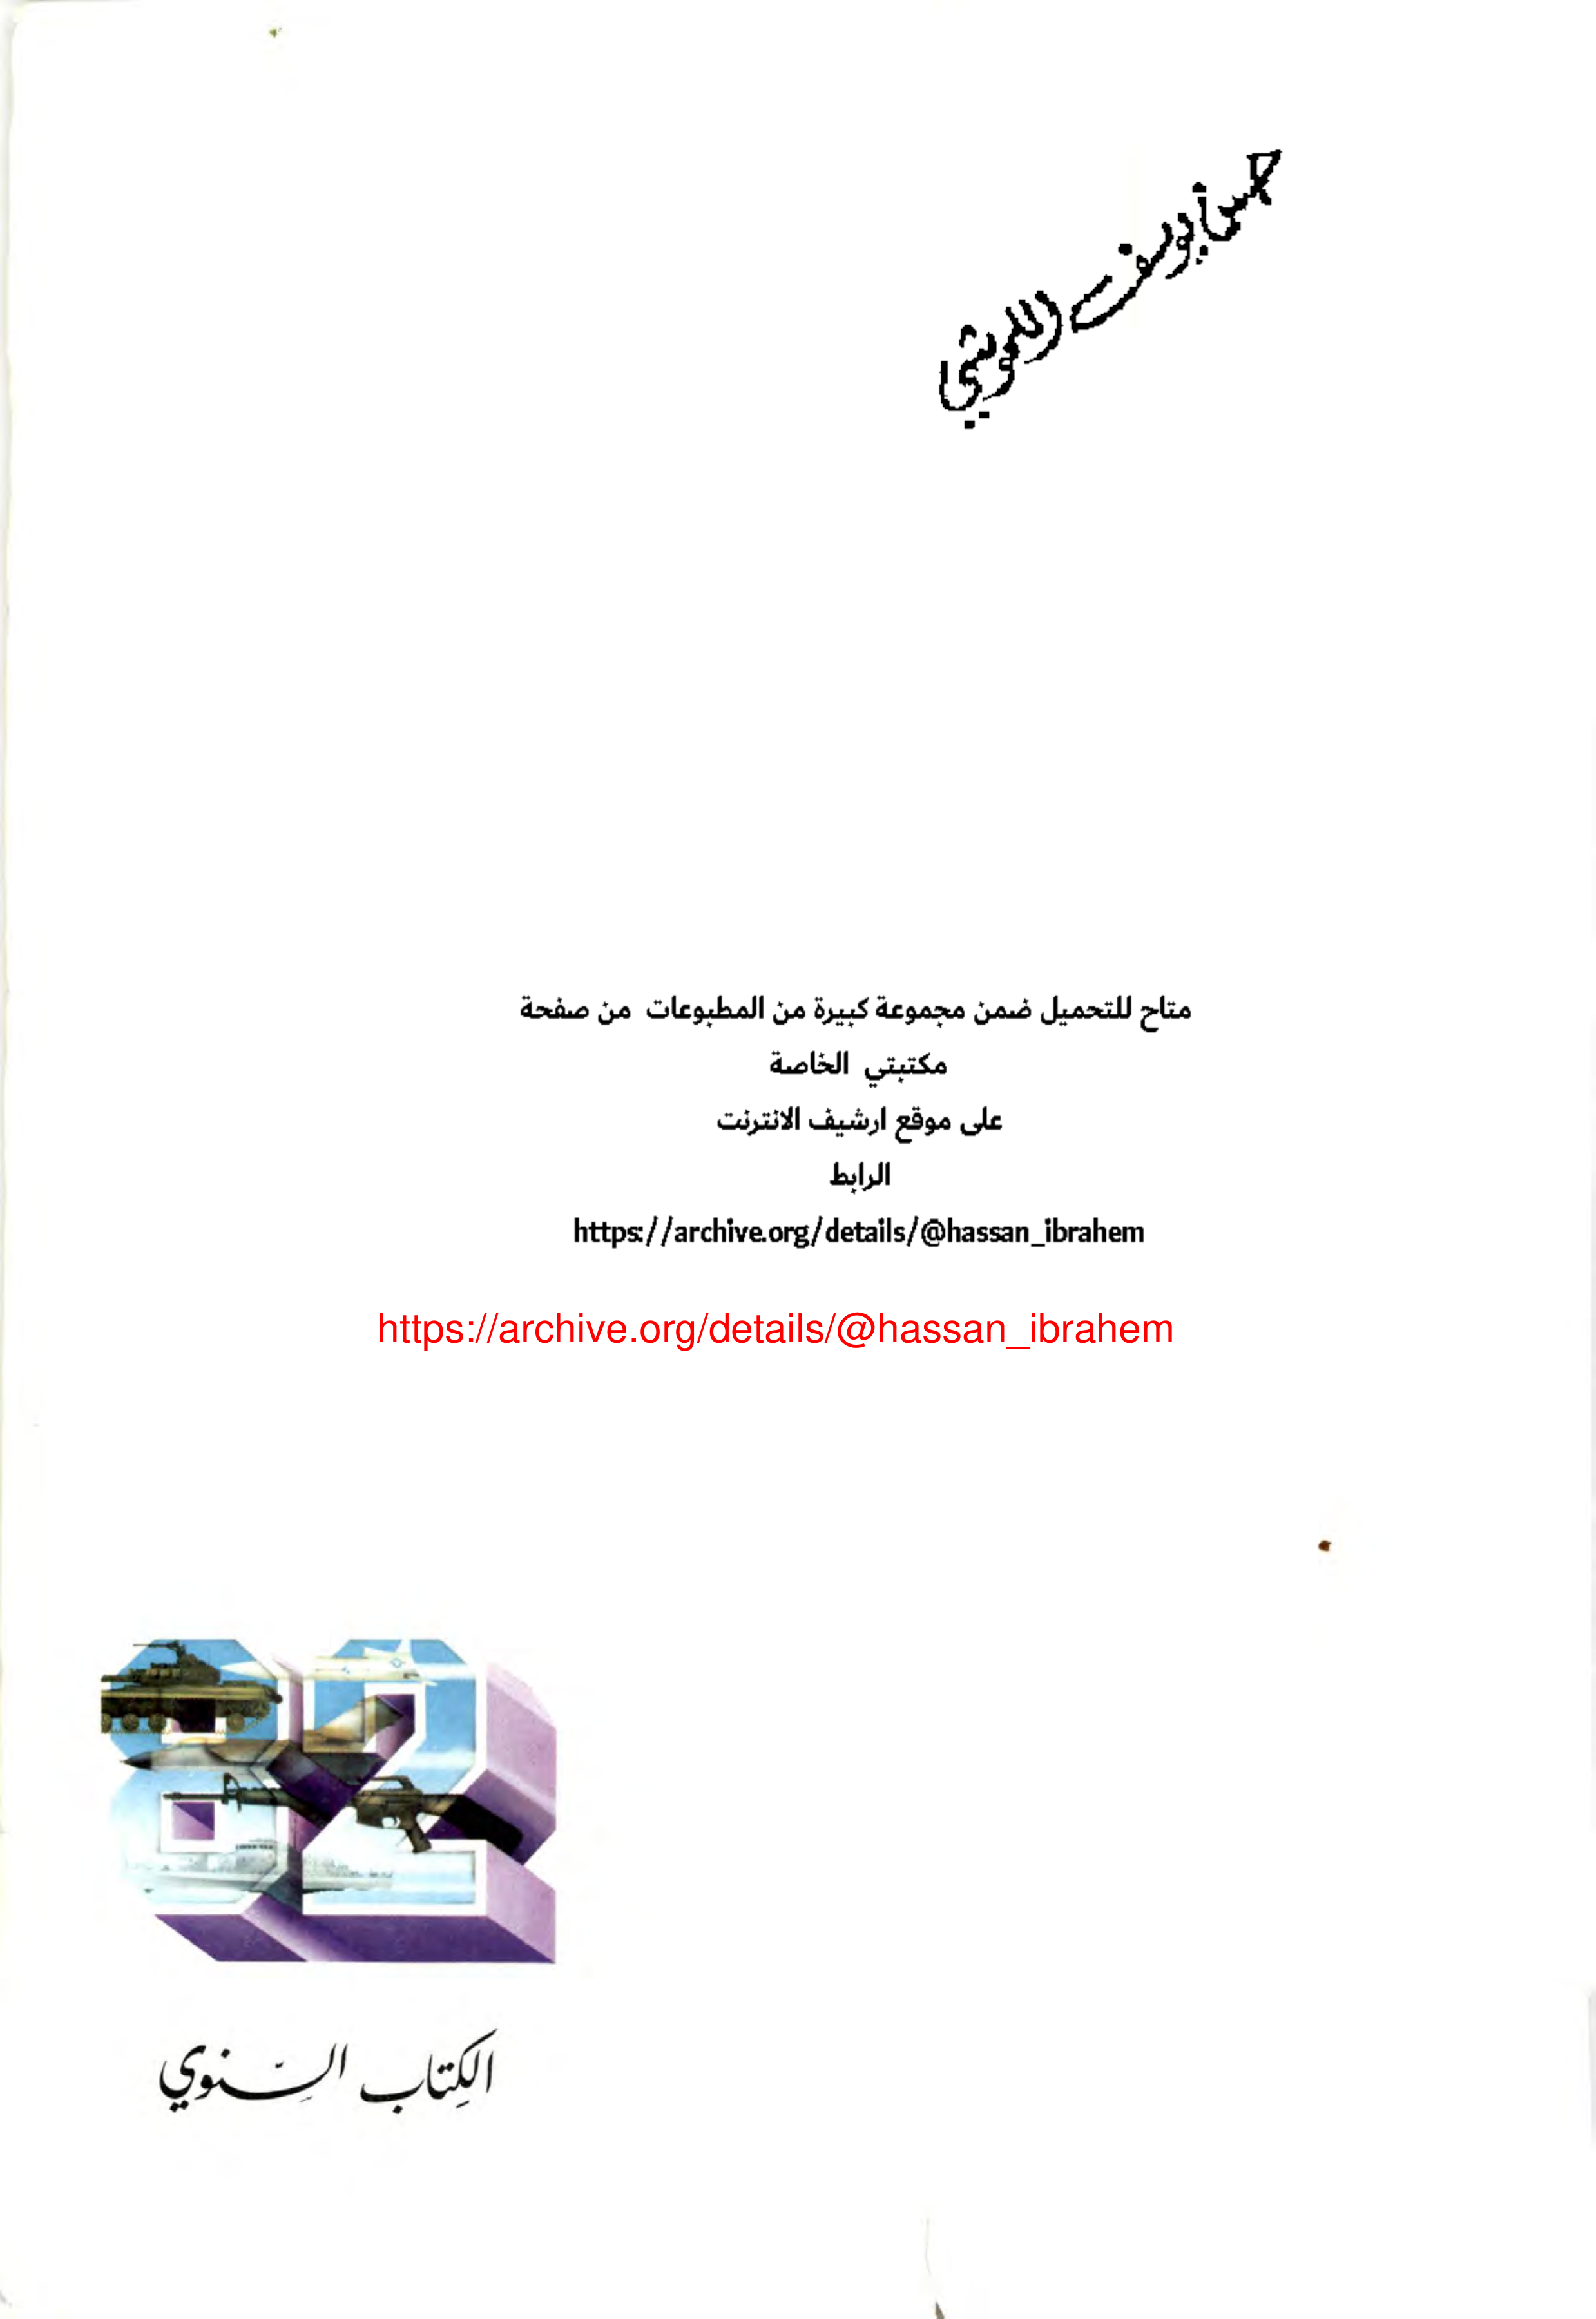 متاح للتحميل ضمن مجموعة كبيرة من المطبوعات من صفحة
مكتبتي الخاصة
على موقع ارشيف الانترنت
الرابط
https://archive.org/details/@hassan_ibrahem
https://archive.org/details/@hassan_ibrahem
82
الكِتاب السِّنوي